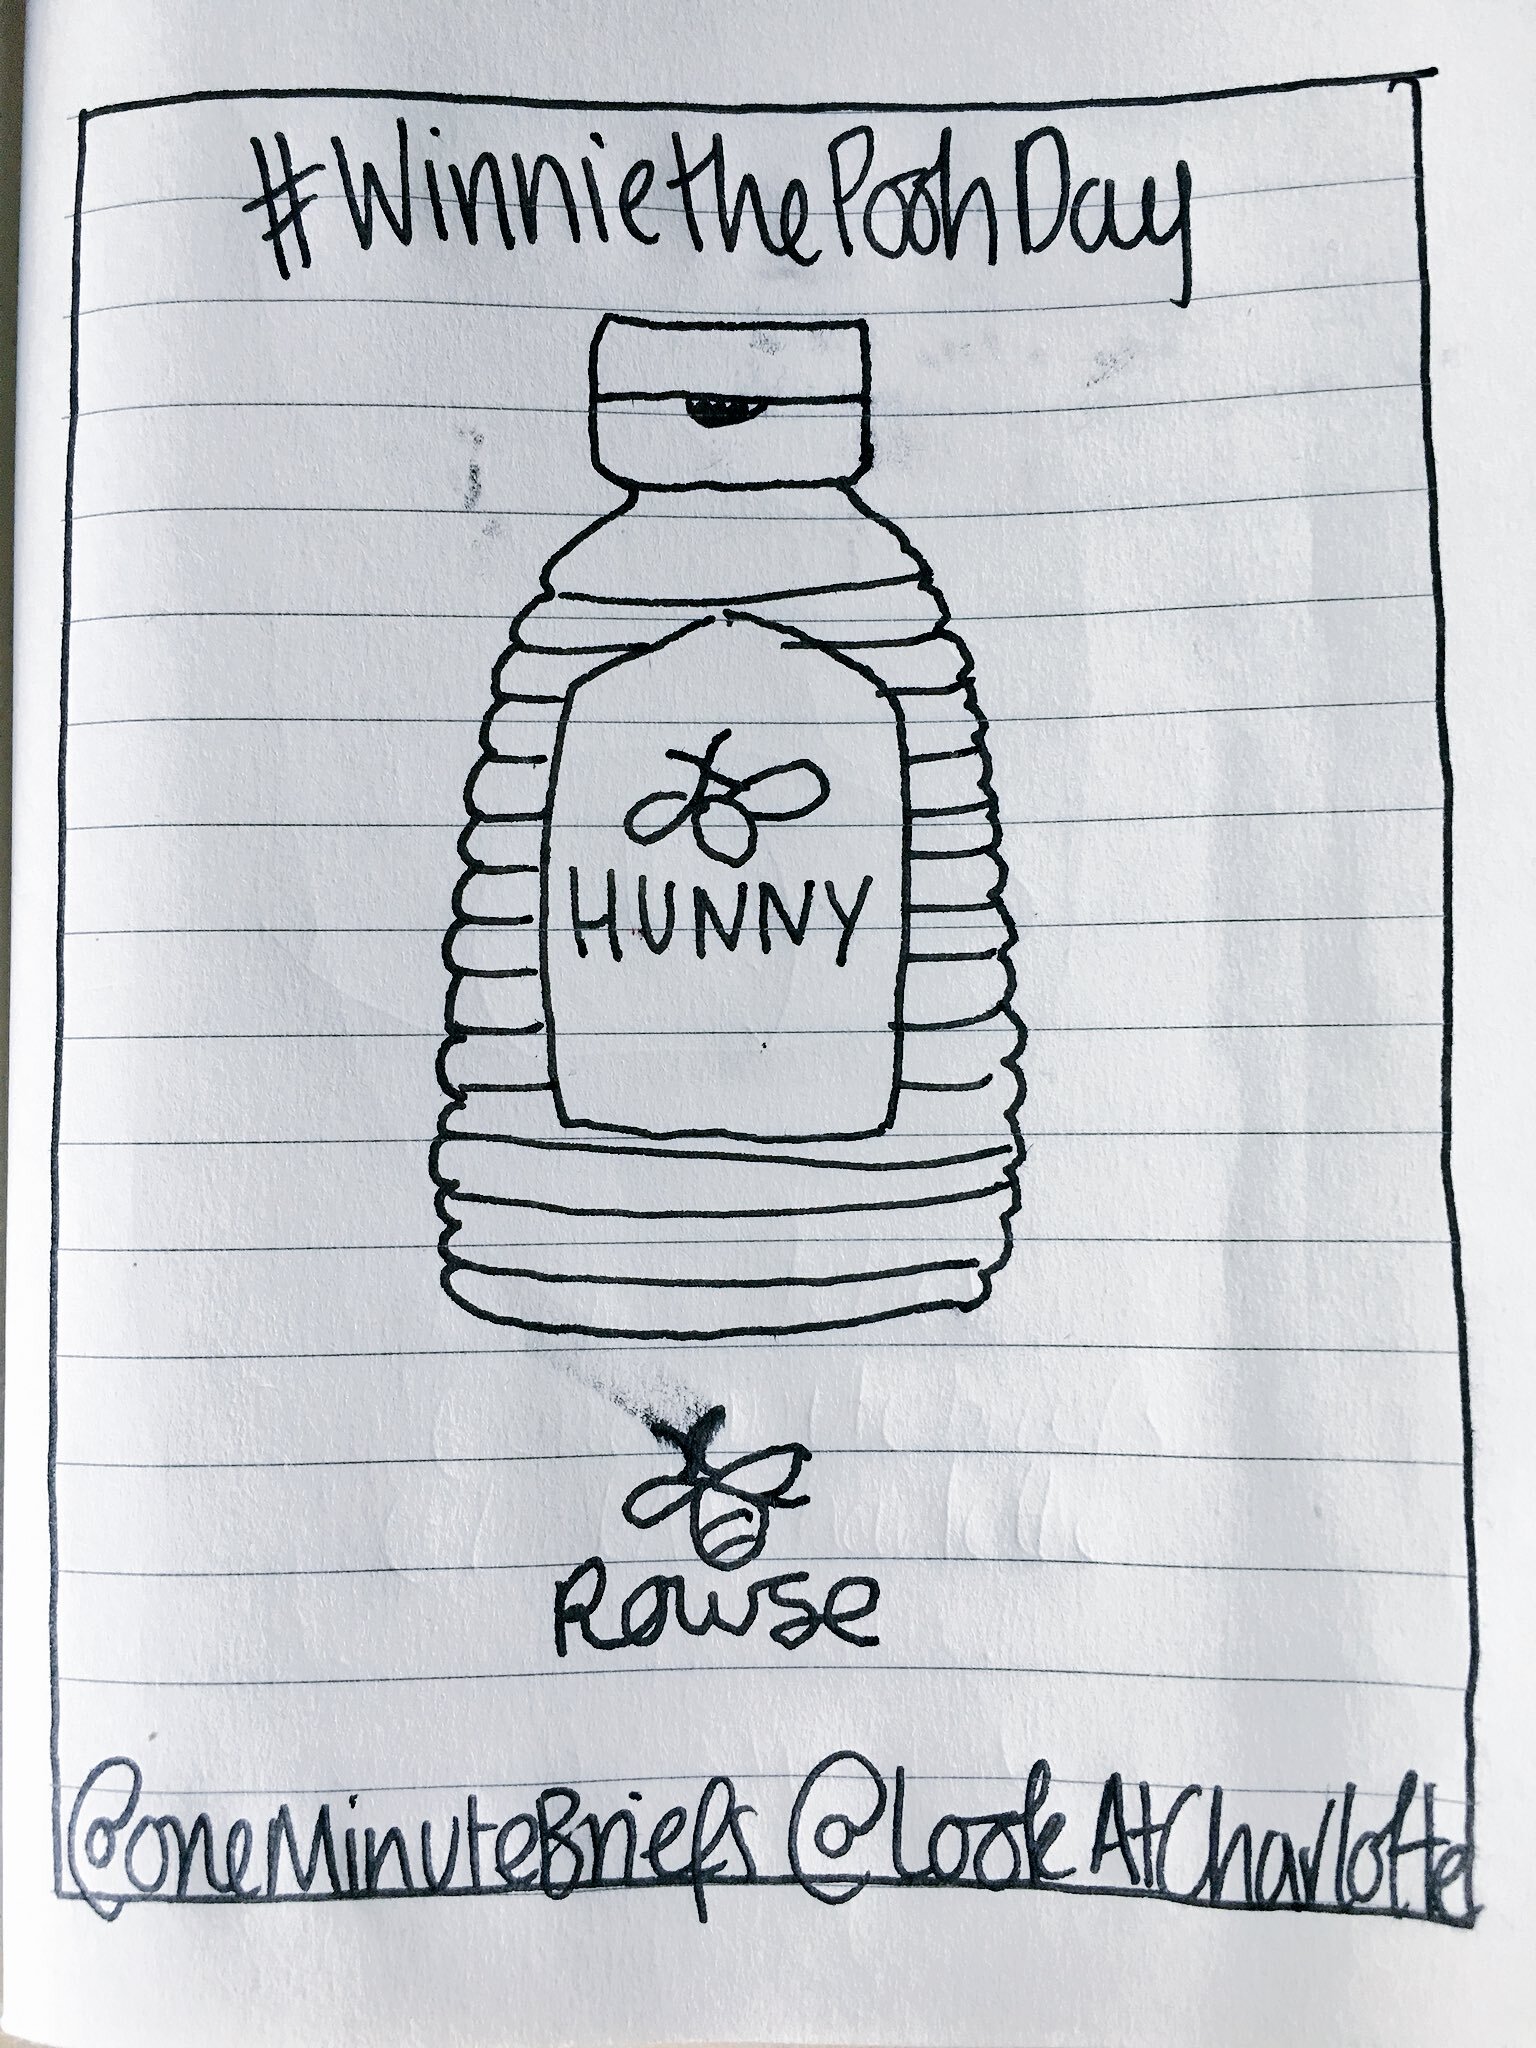 #WinniethePoohDay
HUNNY
Rowse
@oneMinuteBriefs @LookAtCharlotte